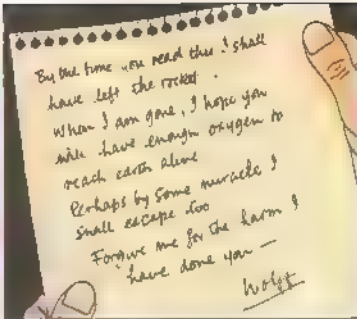 By the time you read this I shall
have left the rocket.
When I am gone, I hope you
will have enough oxygen to
reach earth alive
Perhaps by some miracle I
shall escape too
Forgive me for the harm I
have done you —
Wolff